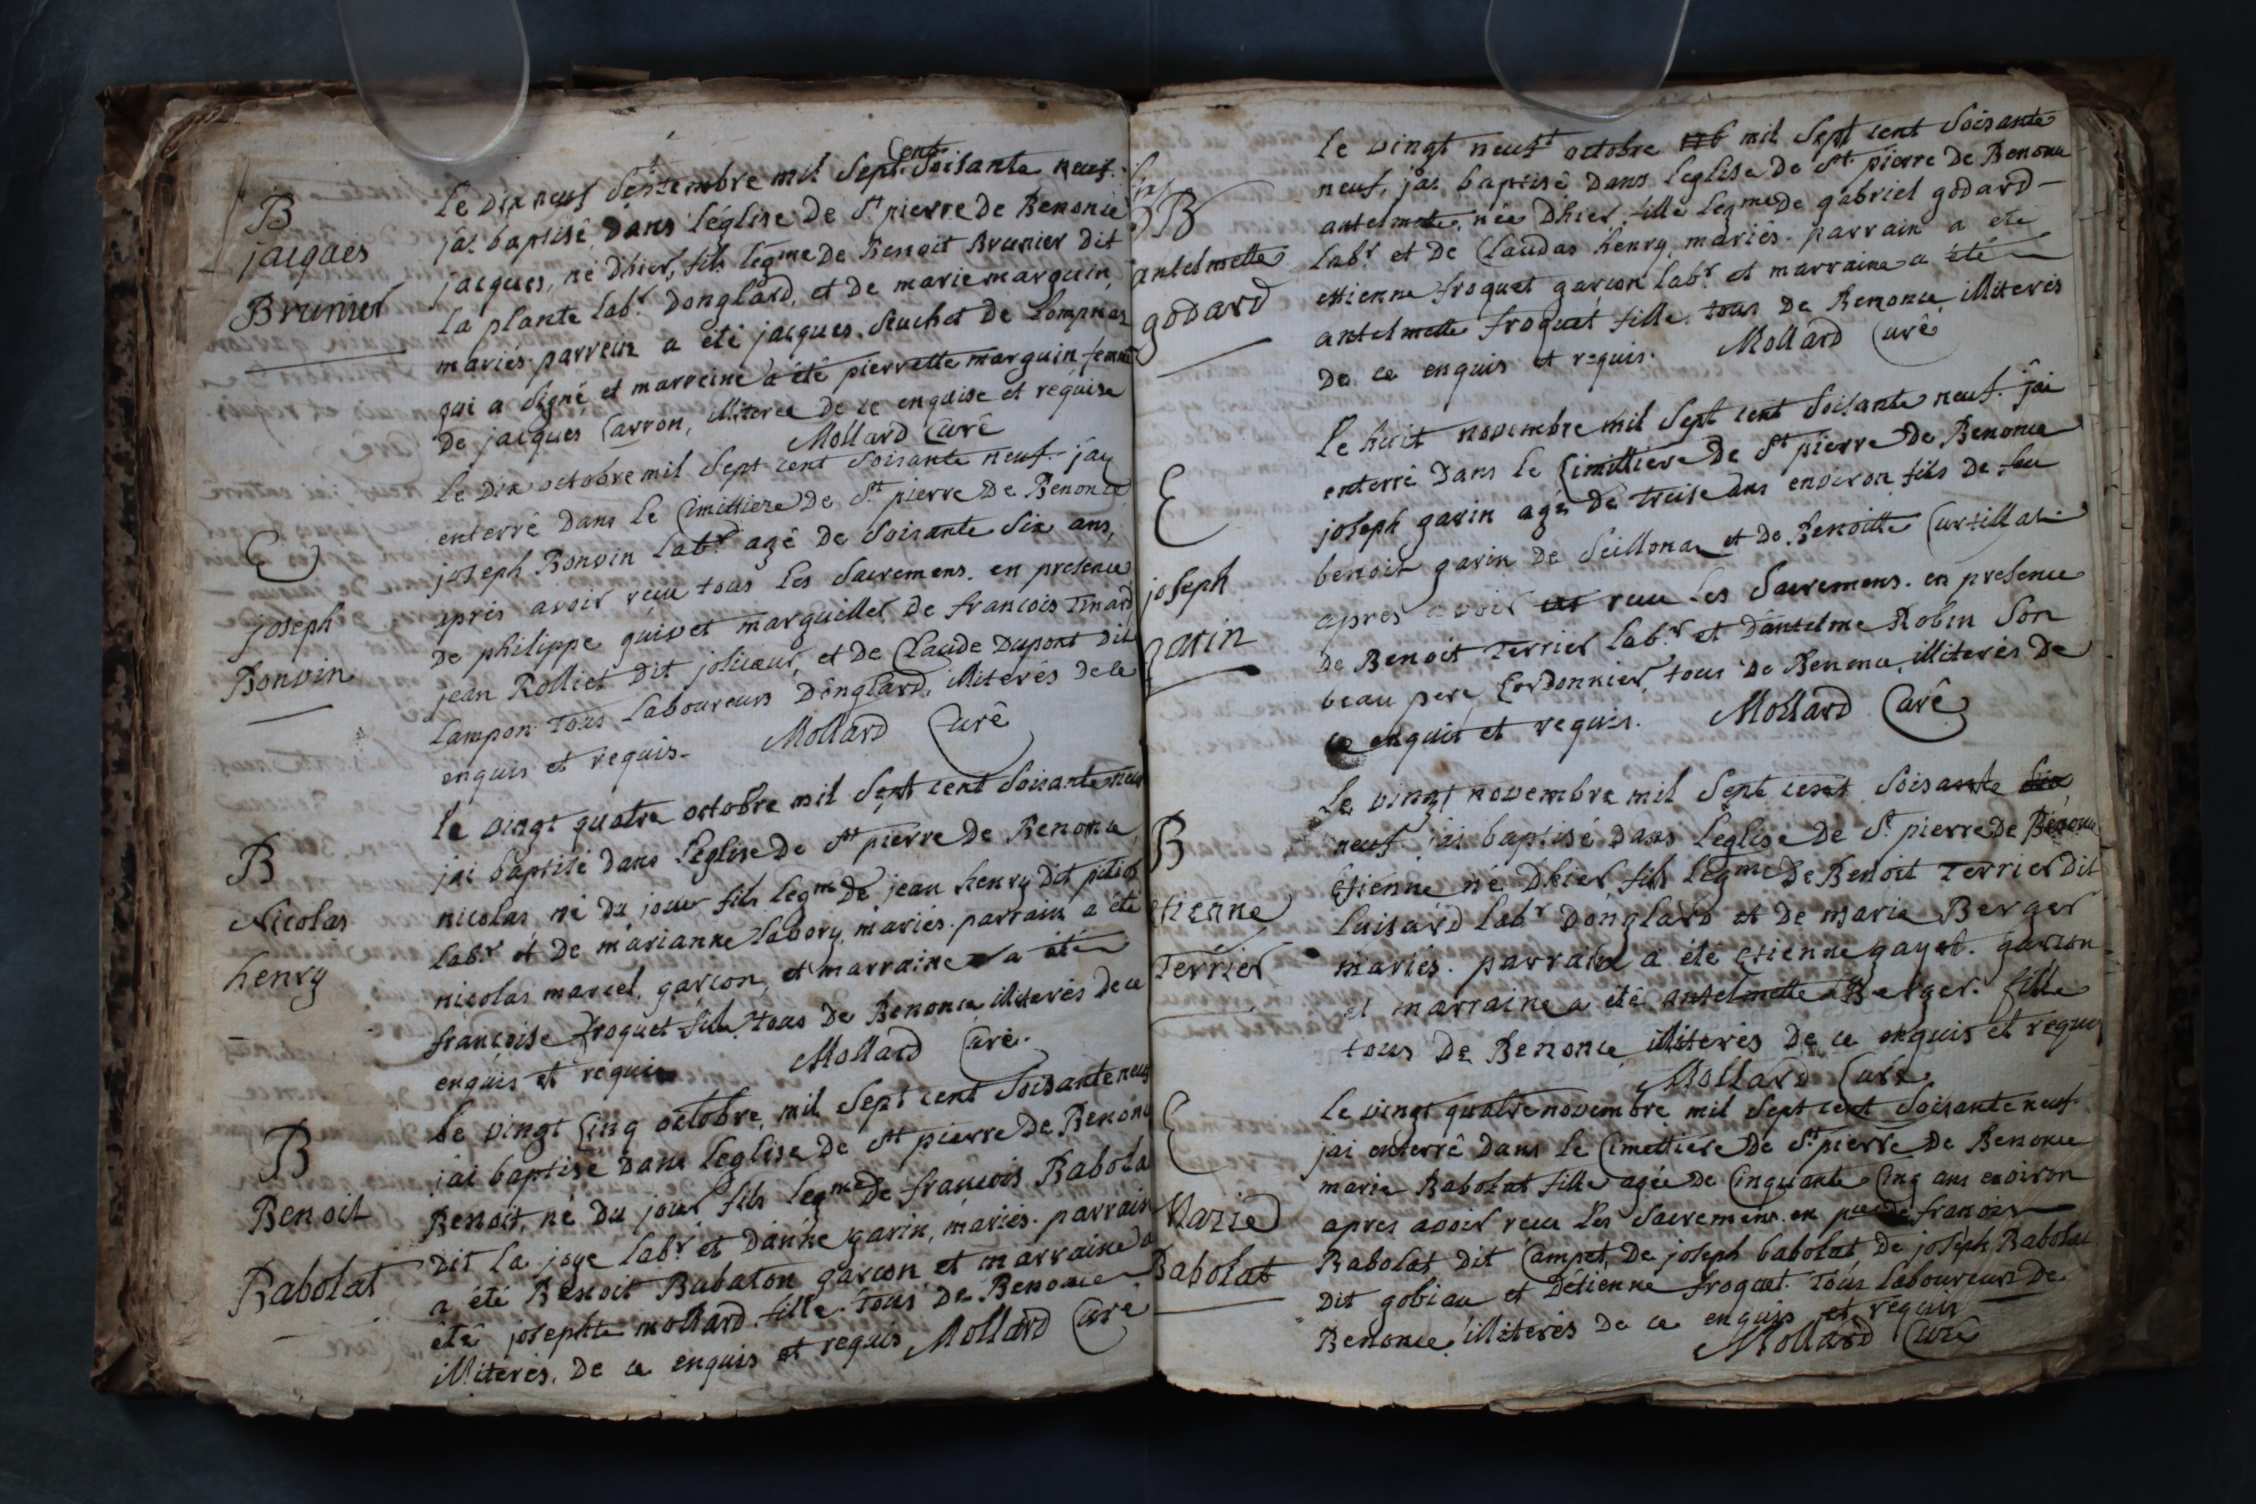 B
jacques
Brunier
Le dix neuf Septembre mil Sept Cent Soisante neuf.
jai baptisé dans l'église de St pierre de Benonce
jacques, né d'hier, fils legme de Benoit Brunier dit
la plante labr. d'onglard, et de marie marguin,
mariés. parrein a été jacques Suchet de Lompnas
qui a signé et marreine a été pierrette marguin femme
de jacques Carron, illiteree de ce enquise et requise
Mollard Curé
E
joseph
Bonvin
Le dix octobre mil Sept cent Soisante neuf. jay
enterré dans le Cimittiere de St pierre de Benonce
joseph Bonvin labr. agé de Soisante Six ans,
après avoir reçu tous les Sacremens. en presence
de philippe quivet marguiller de francois Tinard
jean Rolliet dit jolicoeur, et de Claude Dupont dit
lampon tous laboureurs d'onglard, illiterés de ce
enquis et requis. Mollard Curé
B
Nicolas
henry
le vingt quatre octobre mil Sept cent Soisante neuf
jai baptisé dans l'église de St pierre de Benonce,
nicolas né du jour fils legme de jean henry dit
labr et de marianne labory, mariés. parrain a été
nicolas marcel, garcon, et marraine a été
françoise froquet fille. tous de Benonce illiterés de ce
enquis et requis Mollard Curé.
B
Benoit
Babolat
Le vingt Cinq octobre, mil Sept cent Soisante neuf
jai baptisé dans leglise de St pierre de Benonce
Benoit, né du jour fils legme de francois Babolat
dit la joye labr. et d'anne garin, mariés. parrain
a été Benoit Babaton garcon et marraine a
été josephte mollard fille. tous de Benonce
illiterés, de ce enquis et requis Mollard Curé
B
antelmette
godard
le vingt neuf octobre mil Sept cent Soisante
neuf, jai baptisé dans leglise de St pierre de Benonce
antelmette, née d'hier, fille legme de gabriel godard
labr et de Claudas henry mariés. parrain a été
ettienne froquet garcon labr. et marraine a été
antelmette froquet fille. tous de Benonce illiterés
de ce enquis et requis. Mollard Curé
E
joseph
garin
Le huit novembre mil Sept cent Soisante neuf. jai
enterré dans le Cimittiere de St pierre de Benonce
joseph garin agé de treise ans environ fils de feu
benoit garin de Seillonaz et de Benoitte Curtillat
apres avoir reçu les Sacremens. en presence
de Benoit Terrier labr. et d'antelme Robin Son
beau pere Cordonnier, tous de Benonce, illiterés de
ce enquis et requis. Mollard Curé
B
etienne
Terrier
Le vingt novembre mil Sept cent Soisante
neuf jai baptisé dans leglise de St pierre de Bénonce
Etienne né d'hier fils legme de Benoit Terrier dit
Luisard labr. d'onglard et de marie Berger
mariés. parrain a été etienne gayet. garcon
et marraine a été antelmette Berger. fille
tous de Benonce illiterés de ce enquis et requis
Mollard Curé
E
Marie
Babolat
Le vingt quatre novembre mil Sept cent Soisante neuf.
jai enterré dans le Cimettiere de St pierre de Benonce
marie Babolat fille agée de Cinquante Cinq ans environ
apres avoir reçu les Sacremens. en pce de francois
Babolat dit Campet, de joseph babolat de joseph Babolat
dit gobiau et d'etienne froquet. Tous laboureurs de
Benonce illiterés de ce enquis et requis
Mollard Curé